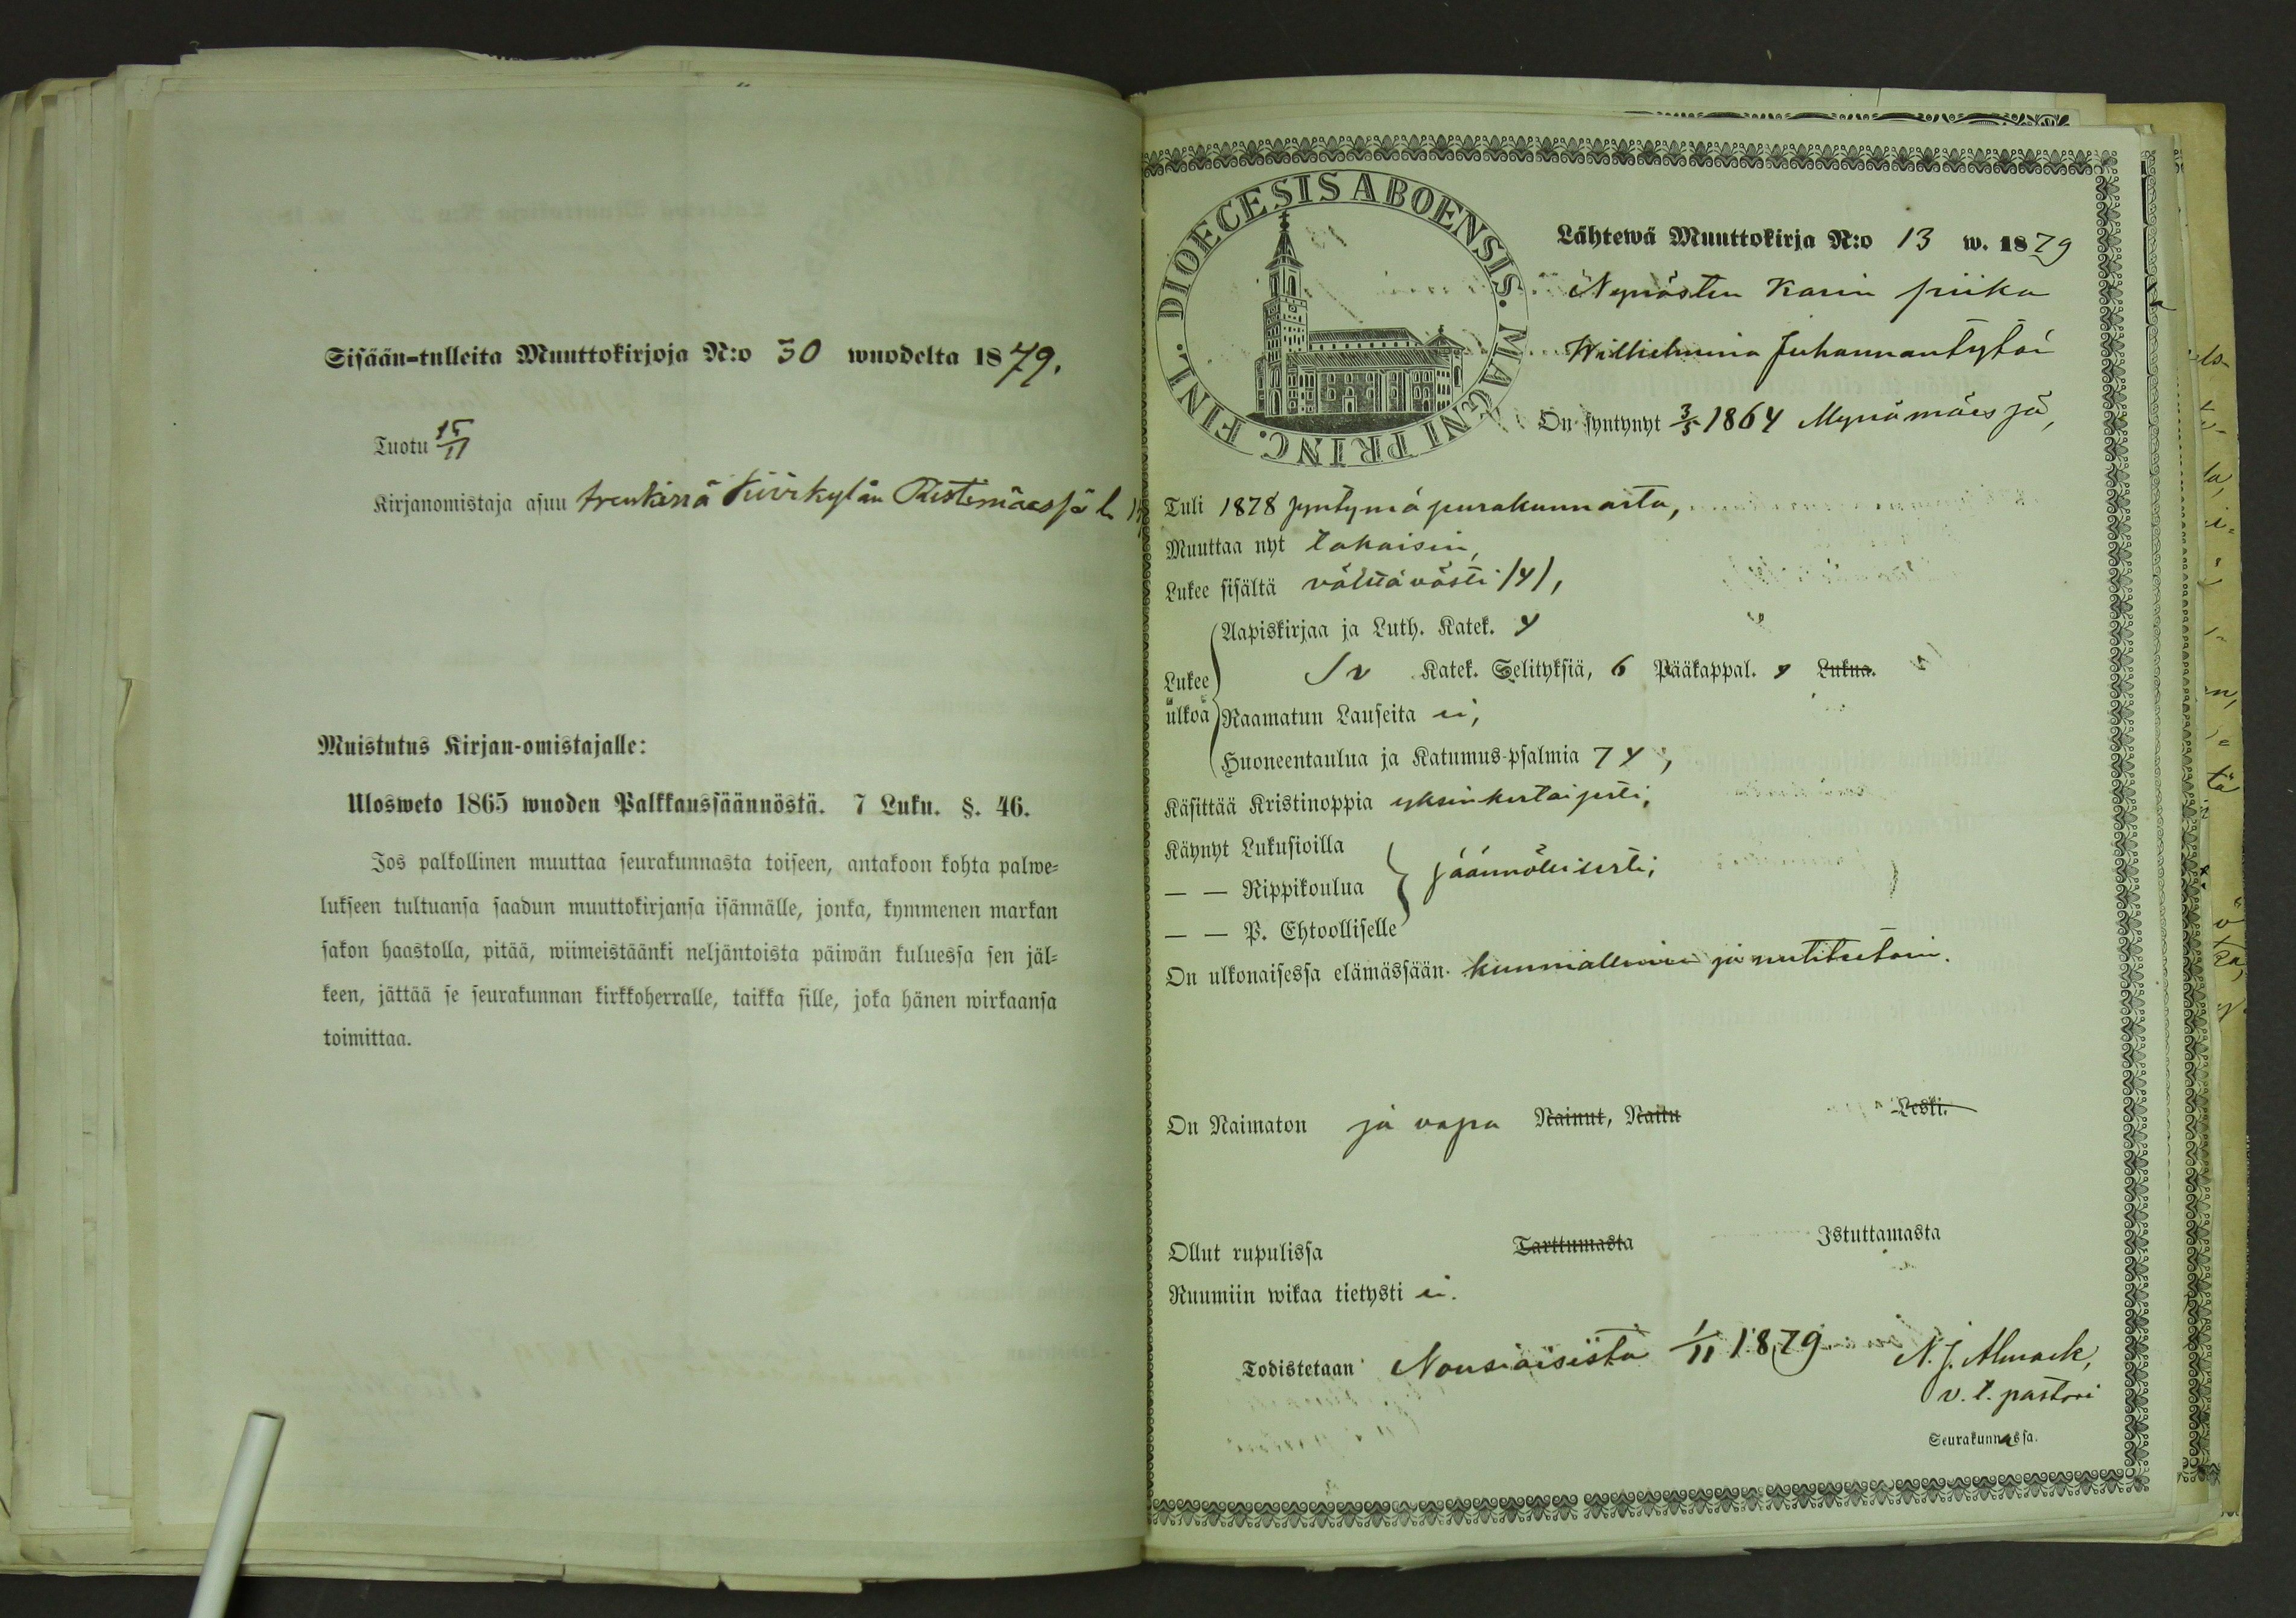 Sisään-tulleita Muuttokirjoja N:o 30 wuodelta 1879.
Tuotu 15/11
Kirjanomistaja asuu trenkinä Kivikylän Ristimäessä
Muistutus Kirjan-omistajalle:
Ulosweto 1865 wuoden Palkkaussäännöstä. 7 Luku. §. 46.
Jos palkollinen muuttaa seurakunnasta toiseen, antakoon kohta palwe-
lukseen tultuansa saadun muuttokirjansa isännälle, jonka, kymmenen markan
sakon haastolla, pitää, wiimeistäänki neljäntoista päiwän kuluessa sen jäl-
keen, jättää se seurakunnan kirkkoherralle, taikka sille, joka hänen wirkaansa
toimittaa.
DIOECESIS ABOENSIS. MAGNI PRINC. FINL.
Lähtewä Muuttokirja N:o 13 w. 1879
Karin piika
Wilhelmina Juhannantytär
On syntynyt 3/5 1864 Mynämäessä,
Tuli 1878 syntymäseurakunnasta,
Muuttaa nyt takaisin,
Lukee sisältä välttävästi /y/,
Lukee ulkoa
Aapiskirjaa ja Luth. Katek. y
Katek. Selityksiä, 6 Pääkappal. y Lukua.
Raamatun Lauseita ei,
Huoneentaulua ja Katumus-psalmia 7 y,
Käsittää Kristinoppia yksinkertaisesti,
Käynyt Lukusioilla
— — Rippikoulua säännöllisesti,
— — P. Ehtoolliselle
On ulkonaisessa elämässään kunniallinen ja nuhteetoin.
On Naimaton ja vapa Nainut, Naitu Leski.
Ollut rupulissa Tarttumasta Istuttamasta
Ruumiin wikaa tietysti ei.
Todistetaan Nousiaisista 1/11 1879 N. J. Almark,
v. t. pastori
Seurakunnassa.